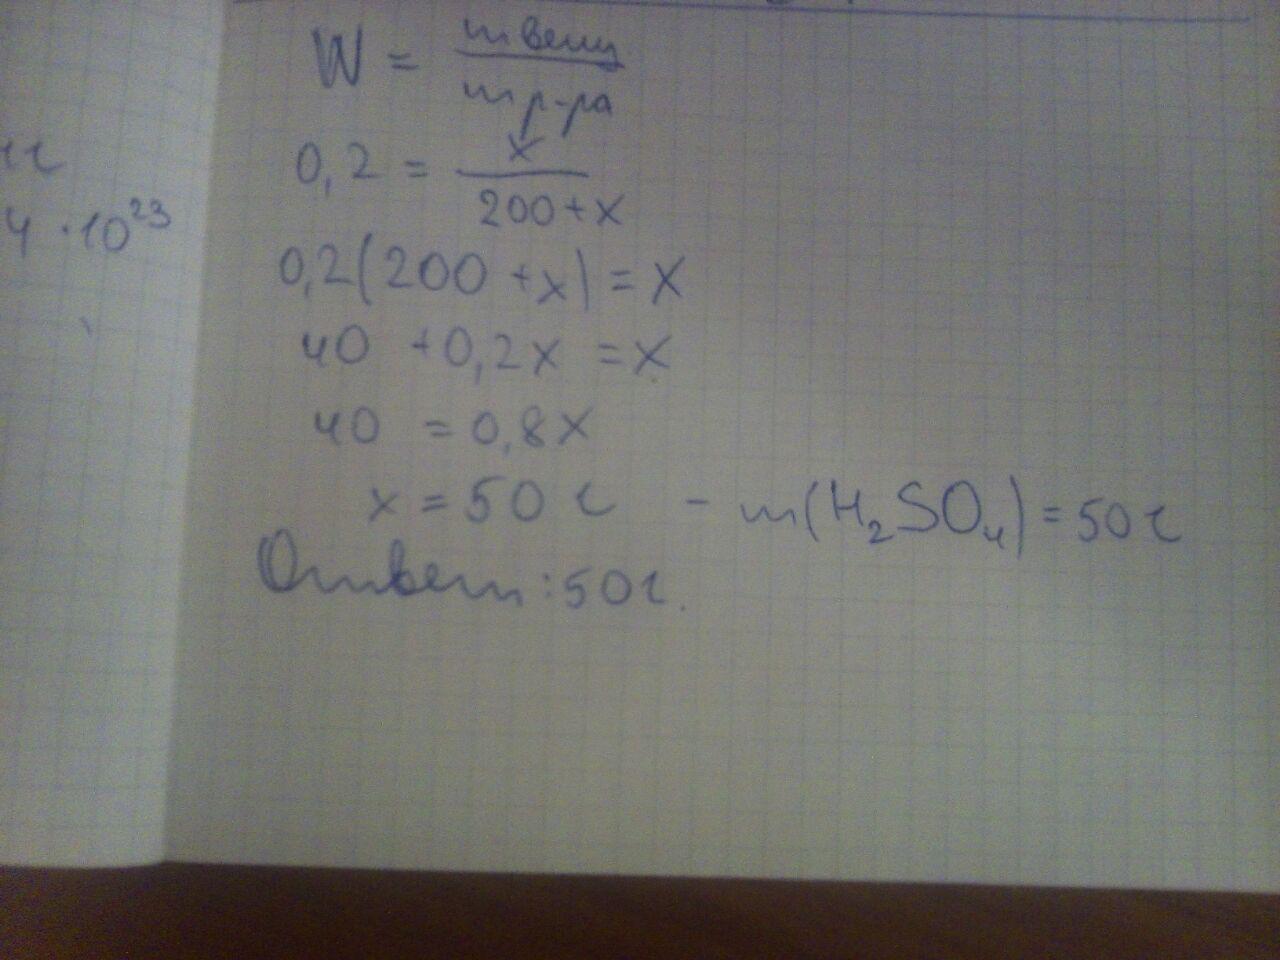 W = m вещ / m р-ра
0,2 = x / 200+x
4 · 10²³
0,2(200 + x) = x
40 + 0,2x = x
40 = 0,8x
x = 50 г - m(H₂SO₄) = 50 г
Ответ: 50 г.